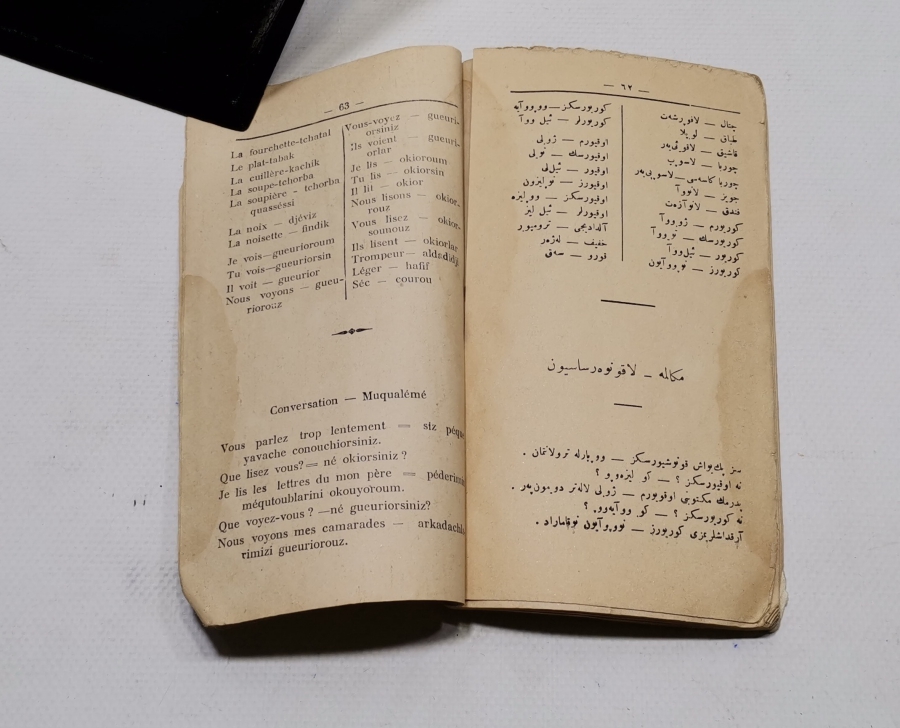 — 63 —
La fourchette-tchatal
Le plat-tabak
La cuillère-kachik
La soupe-tchorba
La soupière - tchorba
quassèssi
La noix — djéviz
La noisette — findik
Je vois—gueurioroum
Tu vois—gueuriorsin
Il voit — gueurior
Nous voyons — gueu-
riorouz
Vous-voyez — gueuri-
orsiniz
Ils voient — gueuri-
orlar
Je lis — okioroum
Tu lis — okiorsin
Il lit — okior
Nous lisons — okior-
rouz
Vous lisez — okior-
sounouz
Ils lisent — okiorlar
Trompeur— aldadidji
Léger — hafif
Séc — courou
Conversation — Muqualémé
Vous parlez trop lentement = siz péque
yavache conouchiorsiniz.
Que lisez vous? = né okiorsiniz ?
Je lis les lettres du mon père = péderimin
méqutoublarini okouyoroum.
Que voyez-vous ? —né gueuriorsiniz?
Nous voyons mes camarades — arkadachla
rimizi gueuriorouz.
— ٦٢ —
چتال — لافورشەت
طباق — لوپلا
قاشیق — لاقوئیەر
چوربا — لاسوپ
چوربا كاسه‌سی — لاسوپیەر
جویز — لانووآ
فندق — لانوآزەت
كوربورم — ژوووآ
كوربورسك — تووووآ
كوربور — ئیل‌ووآ
كوربورز — نوووآیون
كوربورسكز — ووووآیه
كوربورلر — ئیل ووآ
اوقیورم — ژولی
اوقیورسك — تولی
اوقیور — ئیل‌لی
اوقیورز — نولیزون
اوقیورسكز — وولیزه
اوقیورلر — ئیل لیز
آلدادیجی — ترومپور
خفیف — لەژەر
قورو — سەق
مكالمه — لاقونوەرساسیون
سز پك یواش قونوشیورسكز — ووپارله ترولانتمان .
نه اوقیورسكز ؟ — كو لیزەوو ؟
پدرمك مكتوبنی اوقویورم — ژولی لالەتر دومون‌پەر .
نه كوربورسكز ؟ — كو ووآیەوو ؟
آرقداشلریمزی كوربورز — نوووآیون نوقاماراد .